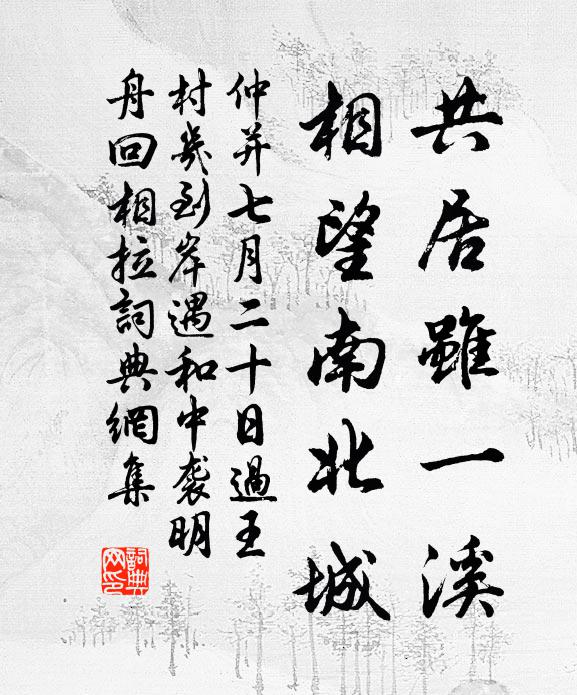 共居雖一溪
相望南北城
仲并七月二十日過王
村幾到岸遇和中襲明
舟回相拉詞典網集
詞典
网印